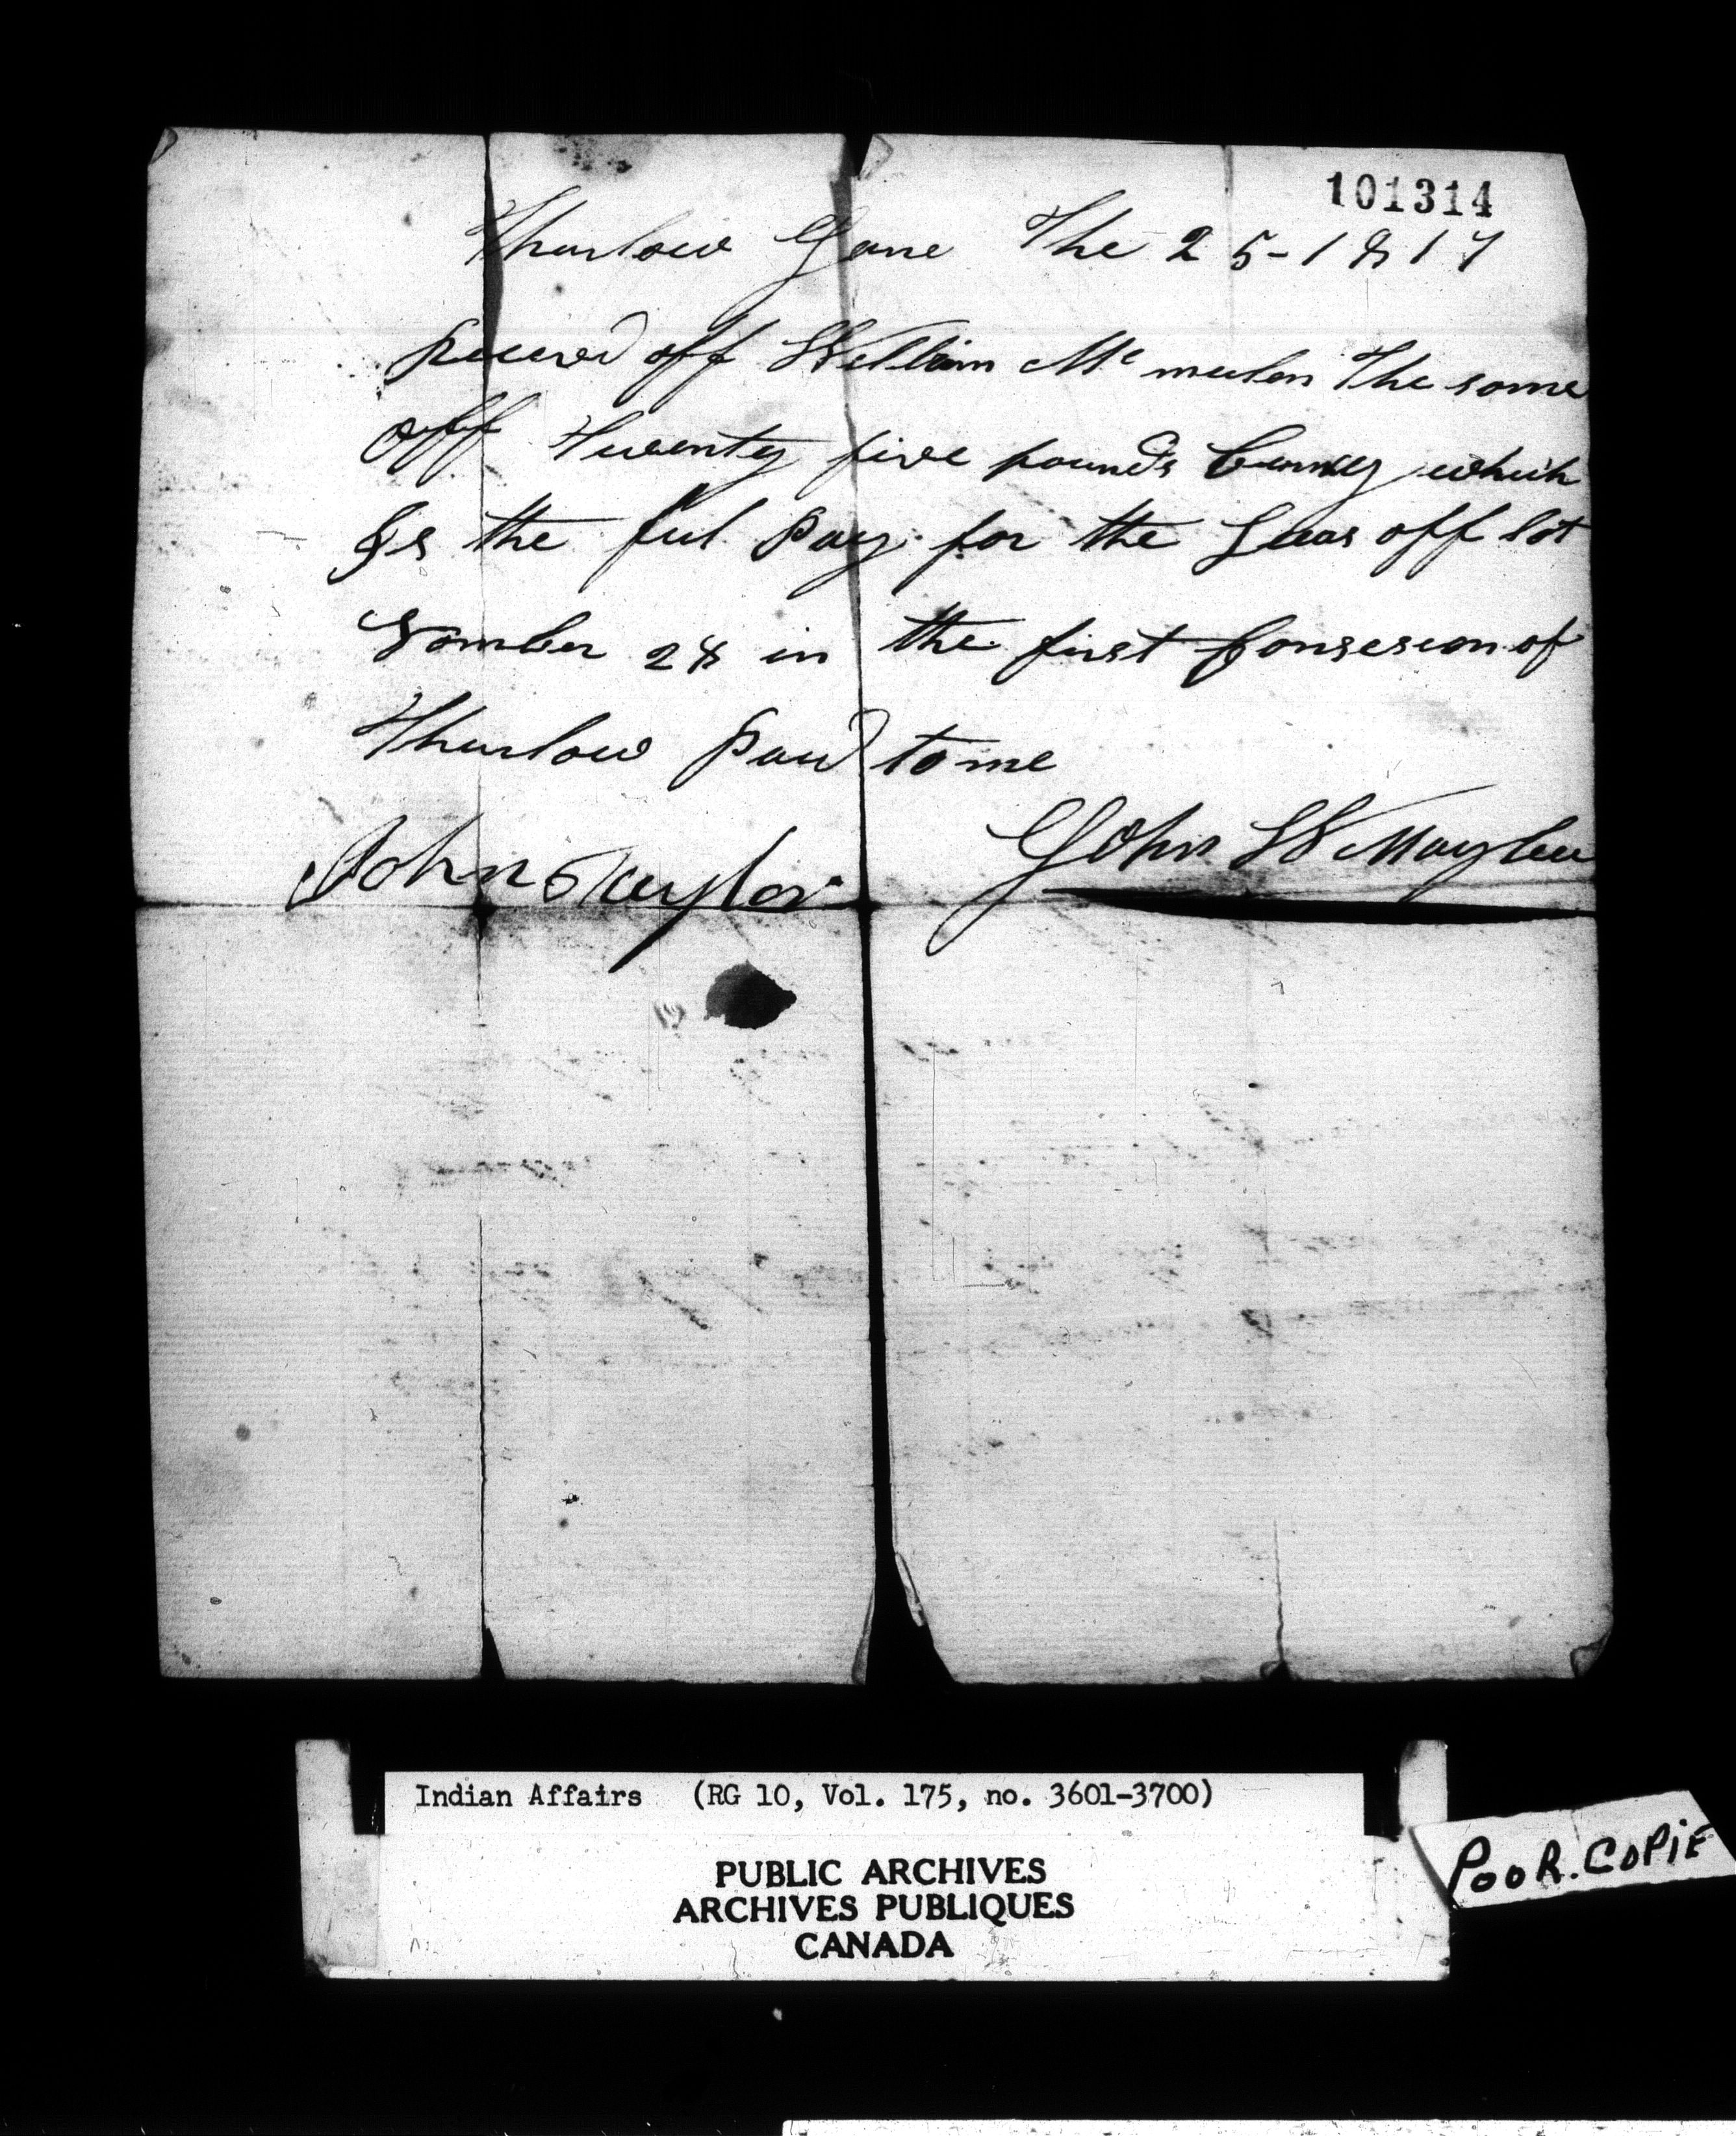 101314
Thurlow June The 25-1817
Receved off William Mc mulen The some
off Twenty five pounds Cureny which
Is the ful Pay for the Leas off lot
Nomber 28 in the first Consesion of
Thurlow Paid to me
John Taylor John W Maybee
Indian Affairs (RG 10, Vol. 175, no. 3601-3700)
PUBLIC ARCHIVES
ARCHIVES PUBLIQUES
CANADA
POOR.COPIE